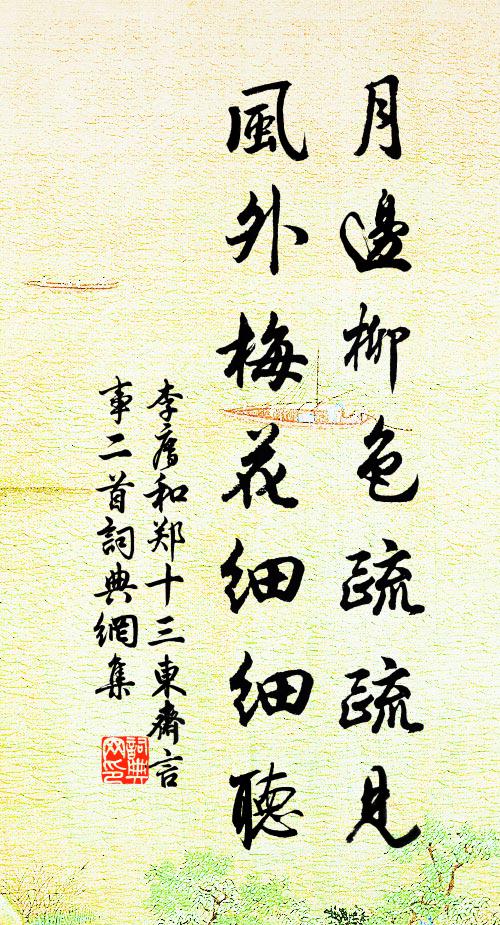 月邊柳色疏疏見
風外梅花細細聽
李廌和郑十三東齋言
事二首詞典網集
詞典网印